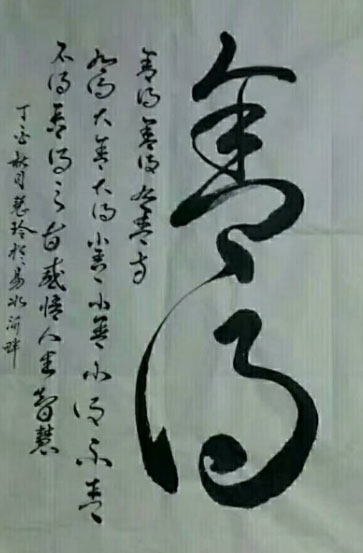 舍得
舍得舍得有舍方
能得大舍大得小舍小得不舍
不得舍得之旨感悟人生智慧
丁酉秋月慧玲於易水河畔